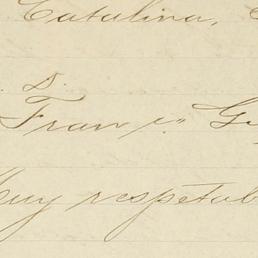 Catalina,
S.
Fran.co G
Muy respetab